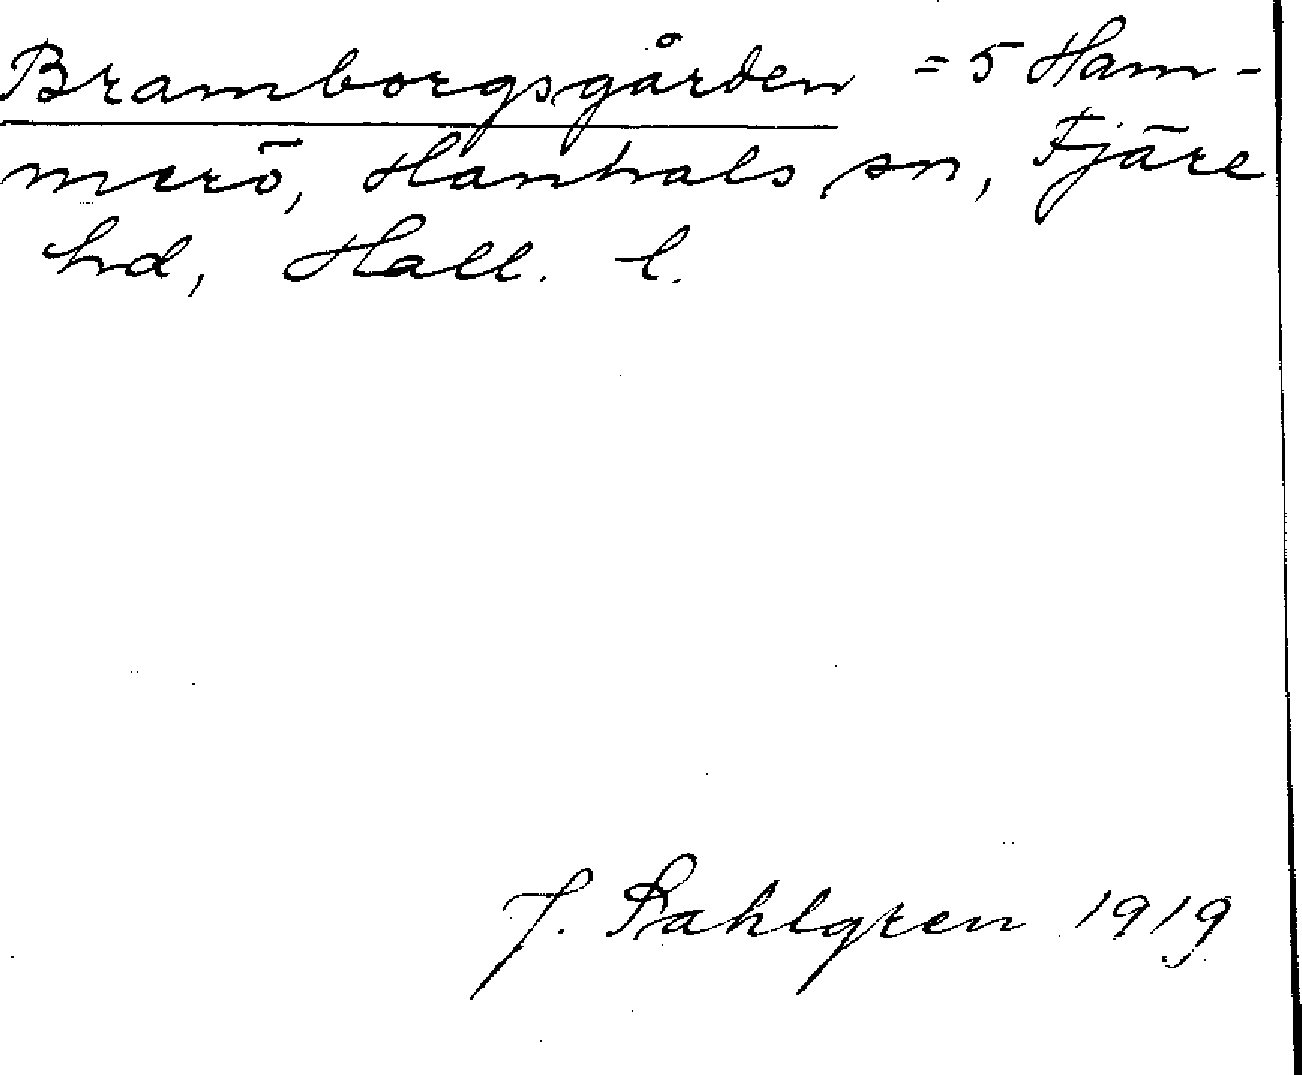 Bramborgsgården = 5 Ham-
merö, Hanhals sn, Fjäre
hd, Hall. l.
J. Sahlgren 1919